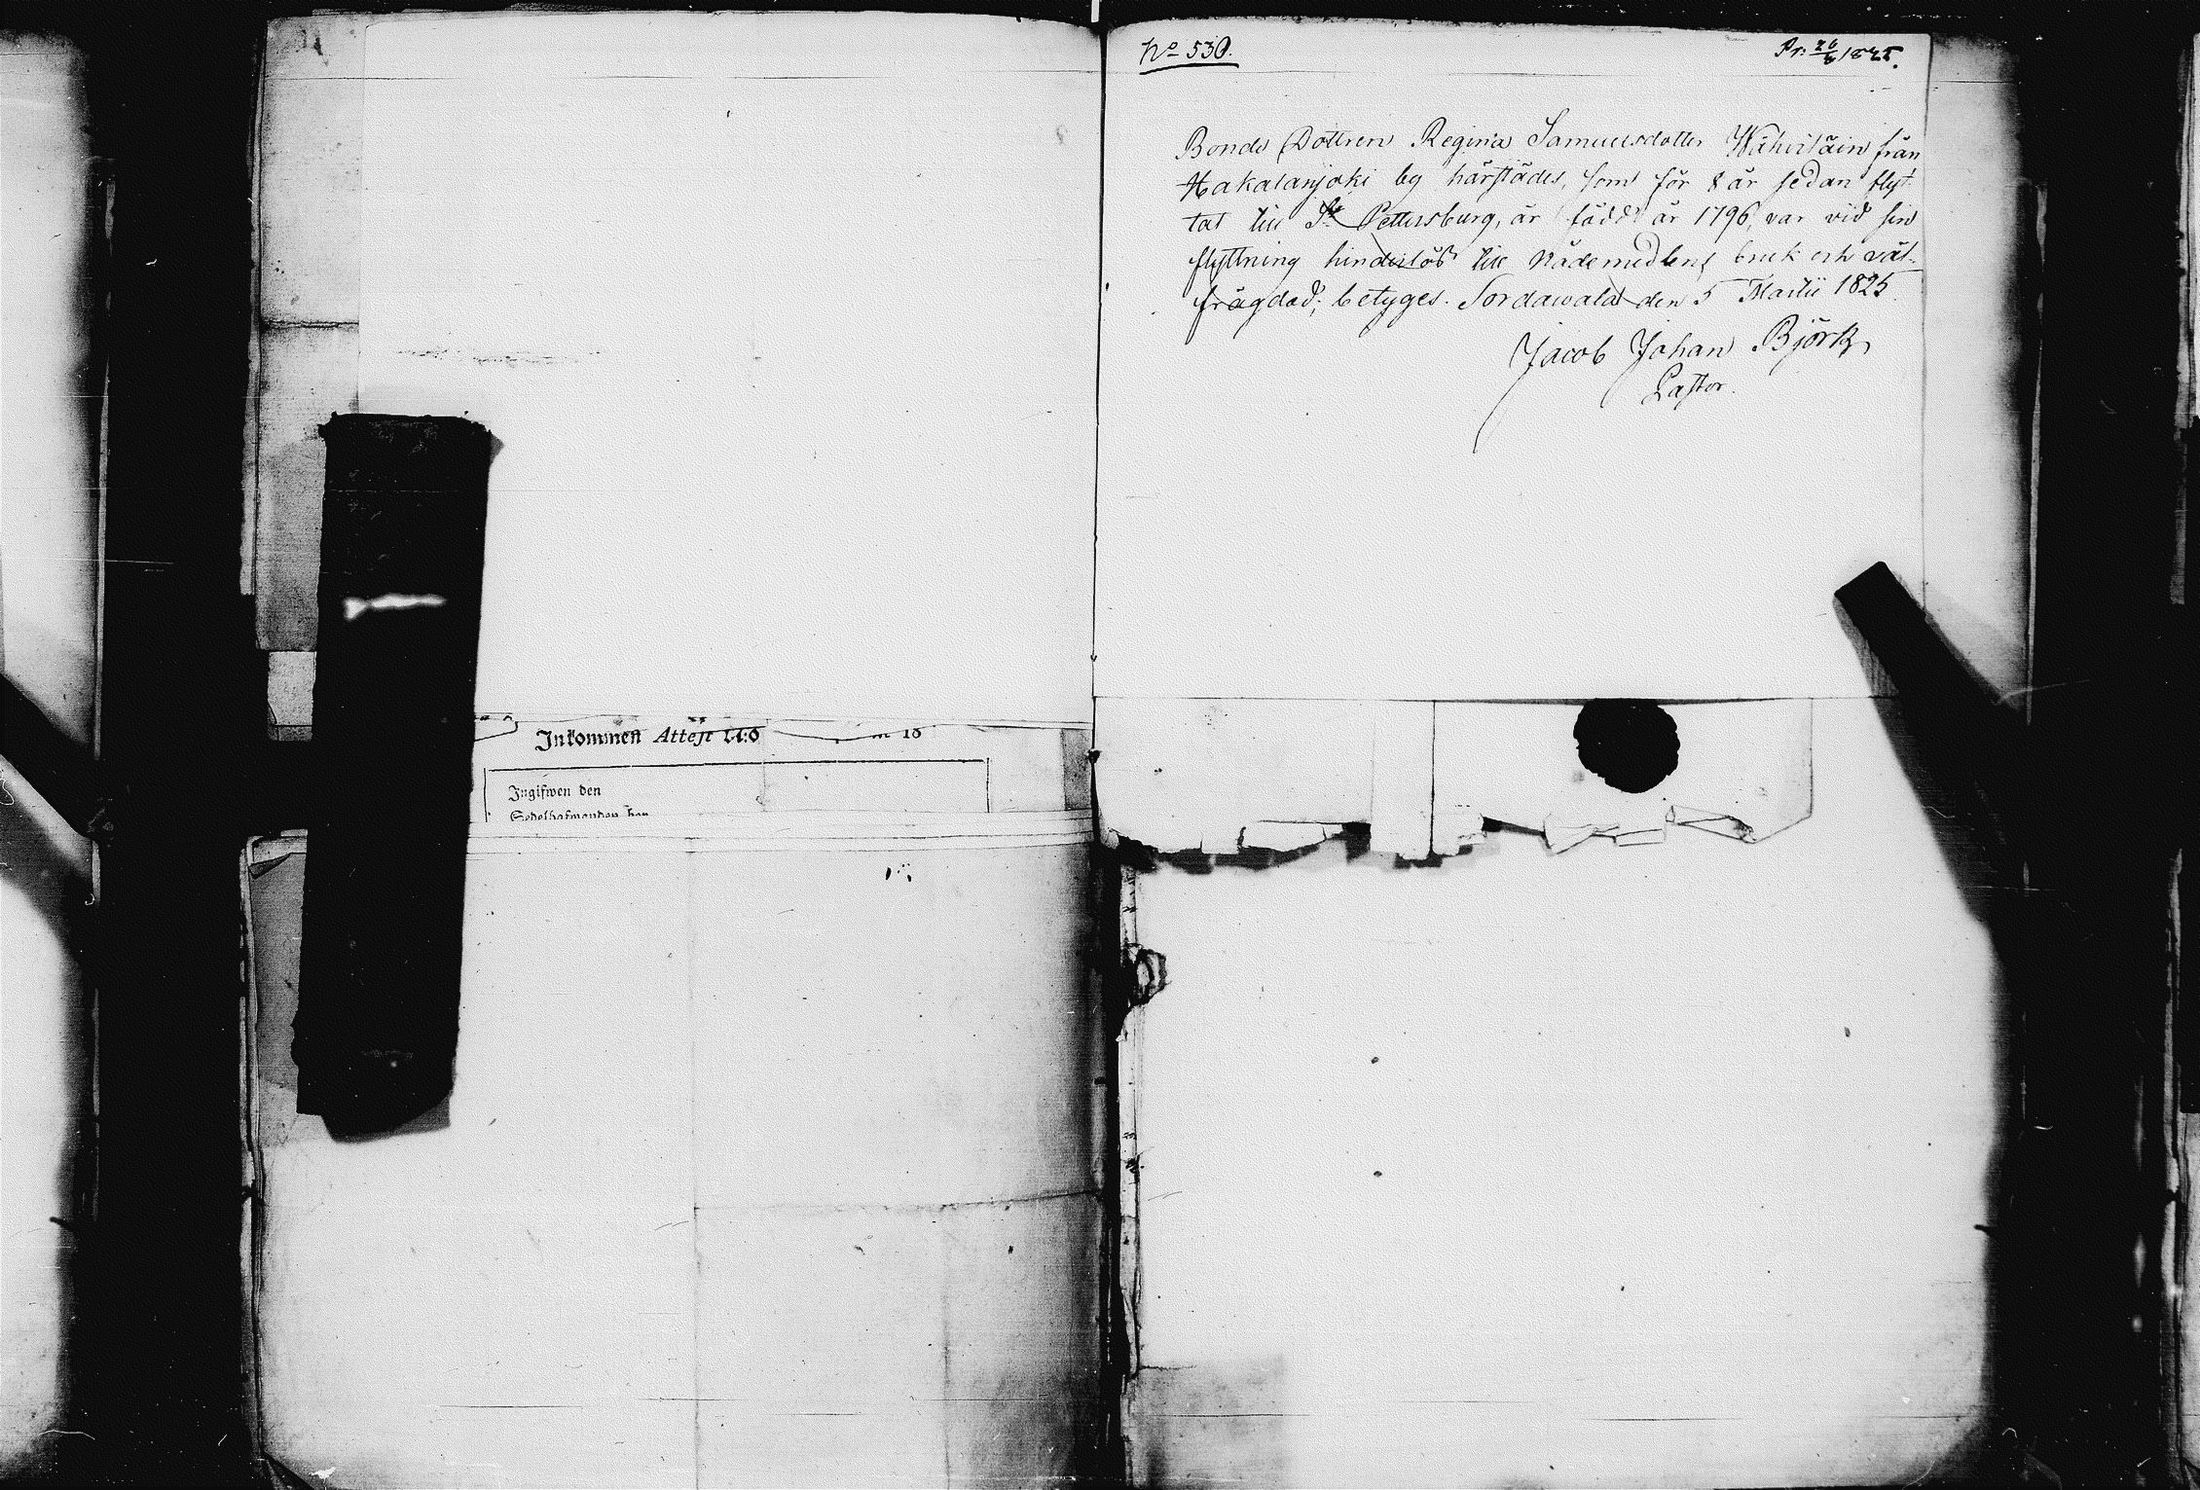 No 530.
Pr. 26/6 1825.
Bonde Dottren Regina Samuelsdotter från
Hakalanjoki by härstädes, som för 8 år sedan flyt-
tat till St Pettersburg, är född år 1796, var vid sin
flyttning hinderlös till Nådemedlens bruk och väl-
frägdad; betyges. Sordawala den 5 Martii 1825.
Jacob Johan Björk,
Pastor.
Inkommen Attest 18
Ingifwen den